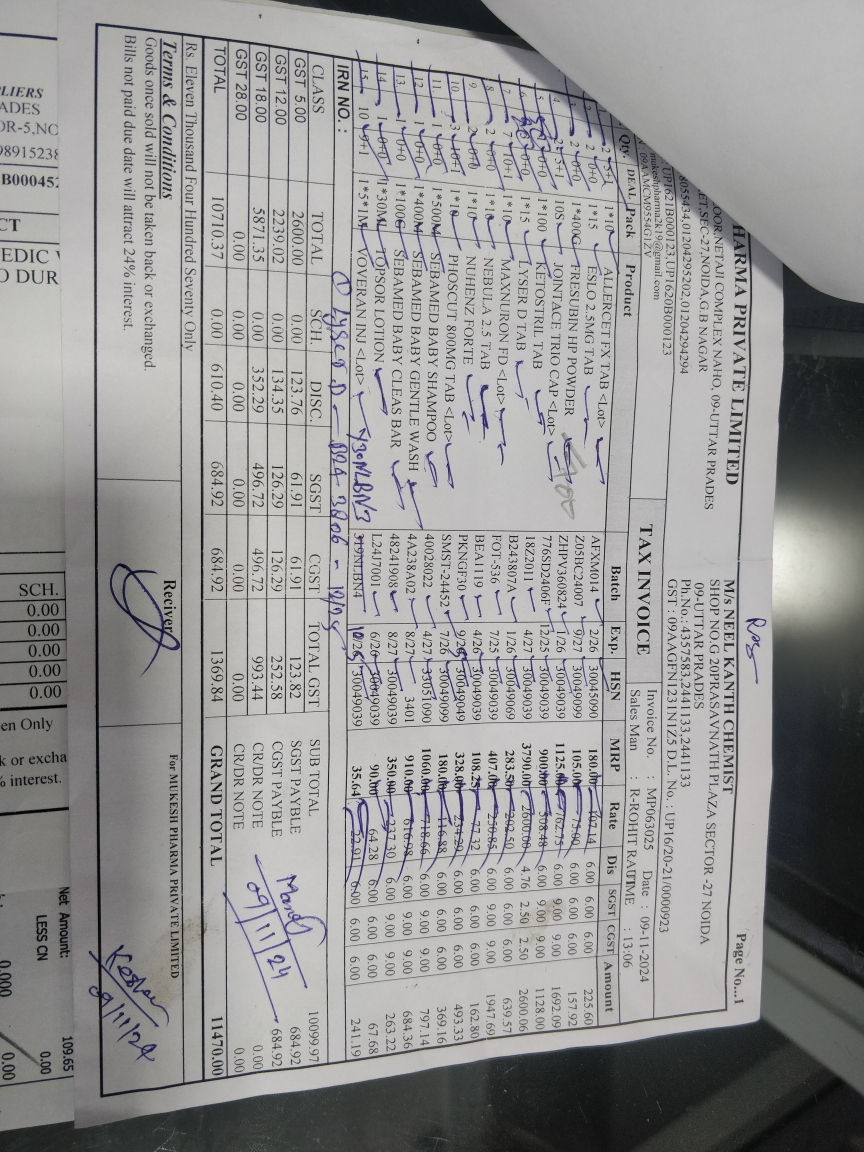 HARMA PRIVATE LIMITED
OOR,NETAJI COMPLEX NAHO, 09-UTTAR PRADES
ET,SEC-27,NOIDA,G.B NAGAR
8055434,01204295202,01204294294
UP1621B000123,UP1620B000123
mukeshpharma2k19@gmail.com
09AAMCM9554G1ZV
TAX INVOICE
Page No...1
M/s NEEL KANTH CHEMIST
SHOP NO.G 20PRASAVNATH PLAZA SECTOR -27 NOIDA
09-UTTAR PRADES
Ph.No.: 4357583,2441133,2441133
GST : 09AAGFN1231N1Z5 D.L. No. : UP16/20-21/0000923
Invoice No. : MP063025 Date : 09-11-2024
Sales Man : R-ROHIT RAUTIME : 13:06
Qty. DEAL Pack Product Batch Exp. HSN MRP Rate Dis SGST CGST Amount
2 5+1 1*10 ALLERCET FX TAB <Lot> AFXM014 2/26 30045090 180.00 107.14 6.00 6.00 6.00 225.60
2 0+0 1*15 ESLO 2.5MG TAB Z05BC24007 9/27 30049099 105.00 75.00 6.00 6.00 6.00 157.92
2 0+0 1*400G FRESUBIN HP POWDER ZHPV360824 1/26 30049039 1125.00 762.75 6.00 9.00 9.00 1692.09
4. 2 5+1 10S JOINTACE TRIO CAP <Lot> 776SD2406F 12/25 30049039 900.00 508.48 6.00 9.00 9.00 1128.00
5. 0+0 1*100 KETOSTRIL TAB 18Z2011 4/27 30049039 3790.00 2600.00 4.76 2.50 2.50 2600.06
6. 0+0 1*15 LYSER D TAB B243807A 1/26 30049069 283.50 202.50 6.00 6.00 6.00 639.57
7. 7 10+1 1*10 MAXNURON FD <Lot> FOT-536 7/25 30049039 407.00 230.85 6.00 9.00 9.00 1947.69
8. 2 0+0 1*10 NEBULA 2.5 TAB BEA1119 4/26 30049039 108.25 77.32 6.00 6.00 6.00 162.80
9. 2 0+0 1*10 NUHENZ FORTE PKNGF30 9/26 30049049 328.00 234.29 6.00 6.00 6.00 493.33
10. 3 10+1 1*10 PHOSCUT 800MG TAB <Lot> SMST-24452 7/26 30049099 180.00 116.88 6.00 6.00 6.00 369.16
11. 1 0+0 1*500M SEBAMED BABY SHAMPOO 40028022 4/27 33051090 1060.00 718.66 6.00 9.00 9.00 797.14
12. 1 0+0 1*400M SEBAMED BABY GENTLE WASH 4A238A02 8/27 3401 910.00 616.98 6.00 9.00 9.00 684.36
13. 1 0+0 1*100G SEBAMED BABY CLEAS BAR 48241908 8/27 30049039 350.00 237.30 6.00 9.00 9.00 263.22
14. 1 0+0 1*30ML TOPSOR LOTION L24J7001 6/26 30049039 90.00 64.28 6.00 6.00 6.00 67.68
15. 10 10+1 1*5*1M VOVERAN INJ <Lot> Y30NLBN3 319NLBN4 10/26 30049039 35.64 22.91 6.00 6.00 6.00 241.19
IRN NO. : ① Lyser D - B243806 - 12/25
CLASS TOTAL SCH. DISC. SGST CGST TOTAL GST
GST 5.00 2600.00 0.00 123.76 61.91 61.91 123.82
GST 12.00 2239.02 0.00 134.35 126.29 126.29 252.58
GST 18.00 5871.35 0.00 352.29 496.72 496.72 993.44
GST 28.00 0.00 0.00 0.00 0.00 0.00 0.00
TOTAL 10710.37 0.00 610.40 684.92 684.92 1369.84
SUB TOTAL 10099.97
SGST PAYBLE 684.92
CGST PAYBLE 684.92
CR/DR NOTE 0.00
CR/DR NOTE 0.00
GRAND TOTAL 11470.00
09/11/24
Rs. Eleven Thousand Four Hundred Seventy Only
Terms & Conditions
Goods once sold will not be taken back or exchanged.
Bills not paid due date will attract 24% interest.
Reciver
For MUKESH PHARMA PRIVATE LIMITED
Keshav
9/11/24
LIERS
ADES
OR-5,NO
9891523
B00045
CT
EDIC
O DUR
SCH.
0.00
0.00
0.00
0.00
0.00
en Only
k or excha
% interest.
Net Amount: 109.65
LESS CN 0.00
0.000
0.00